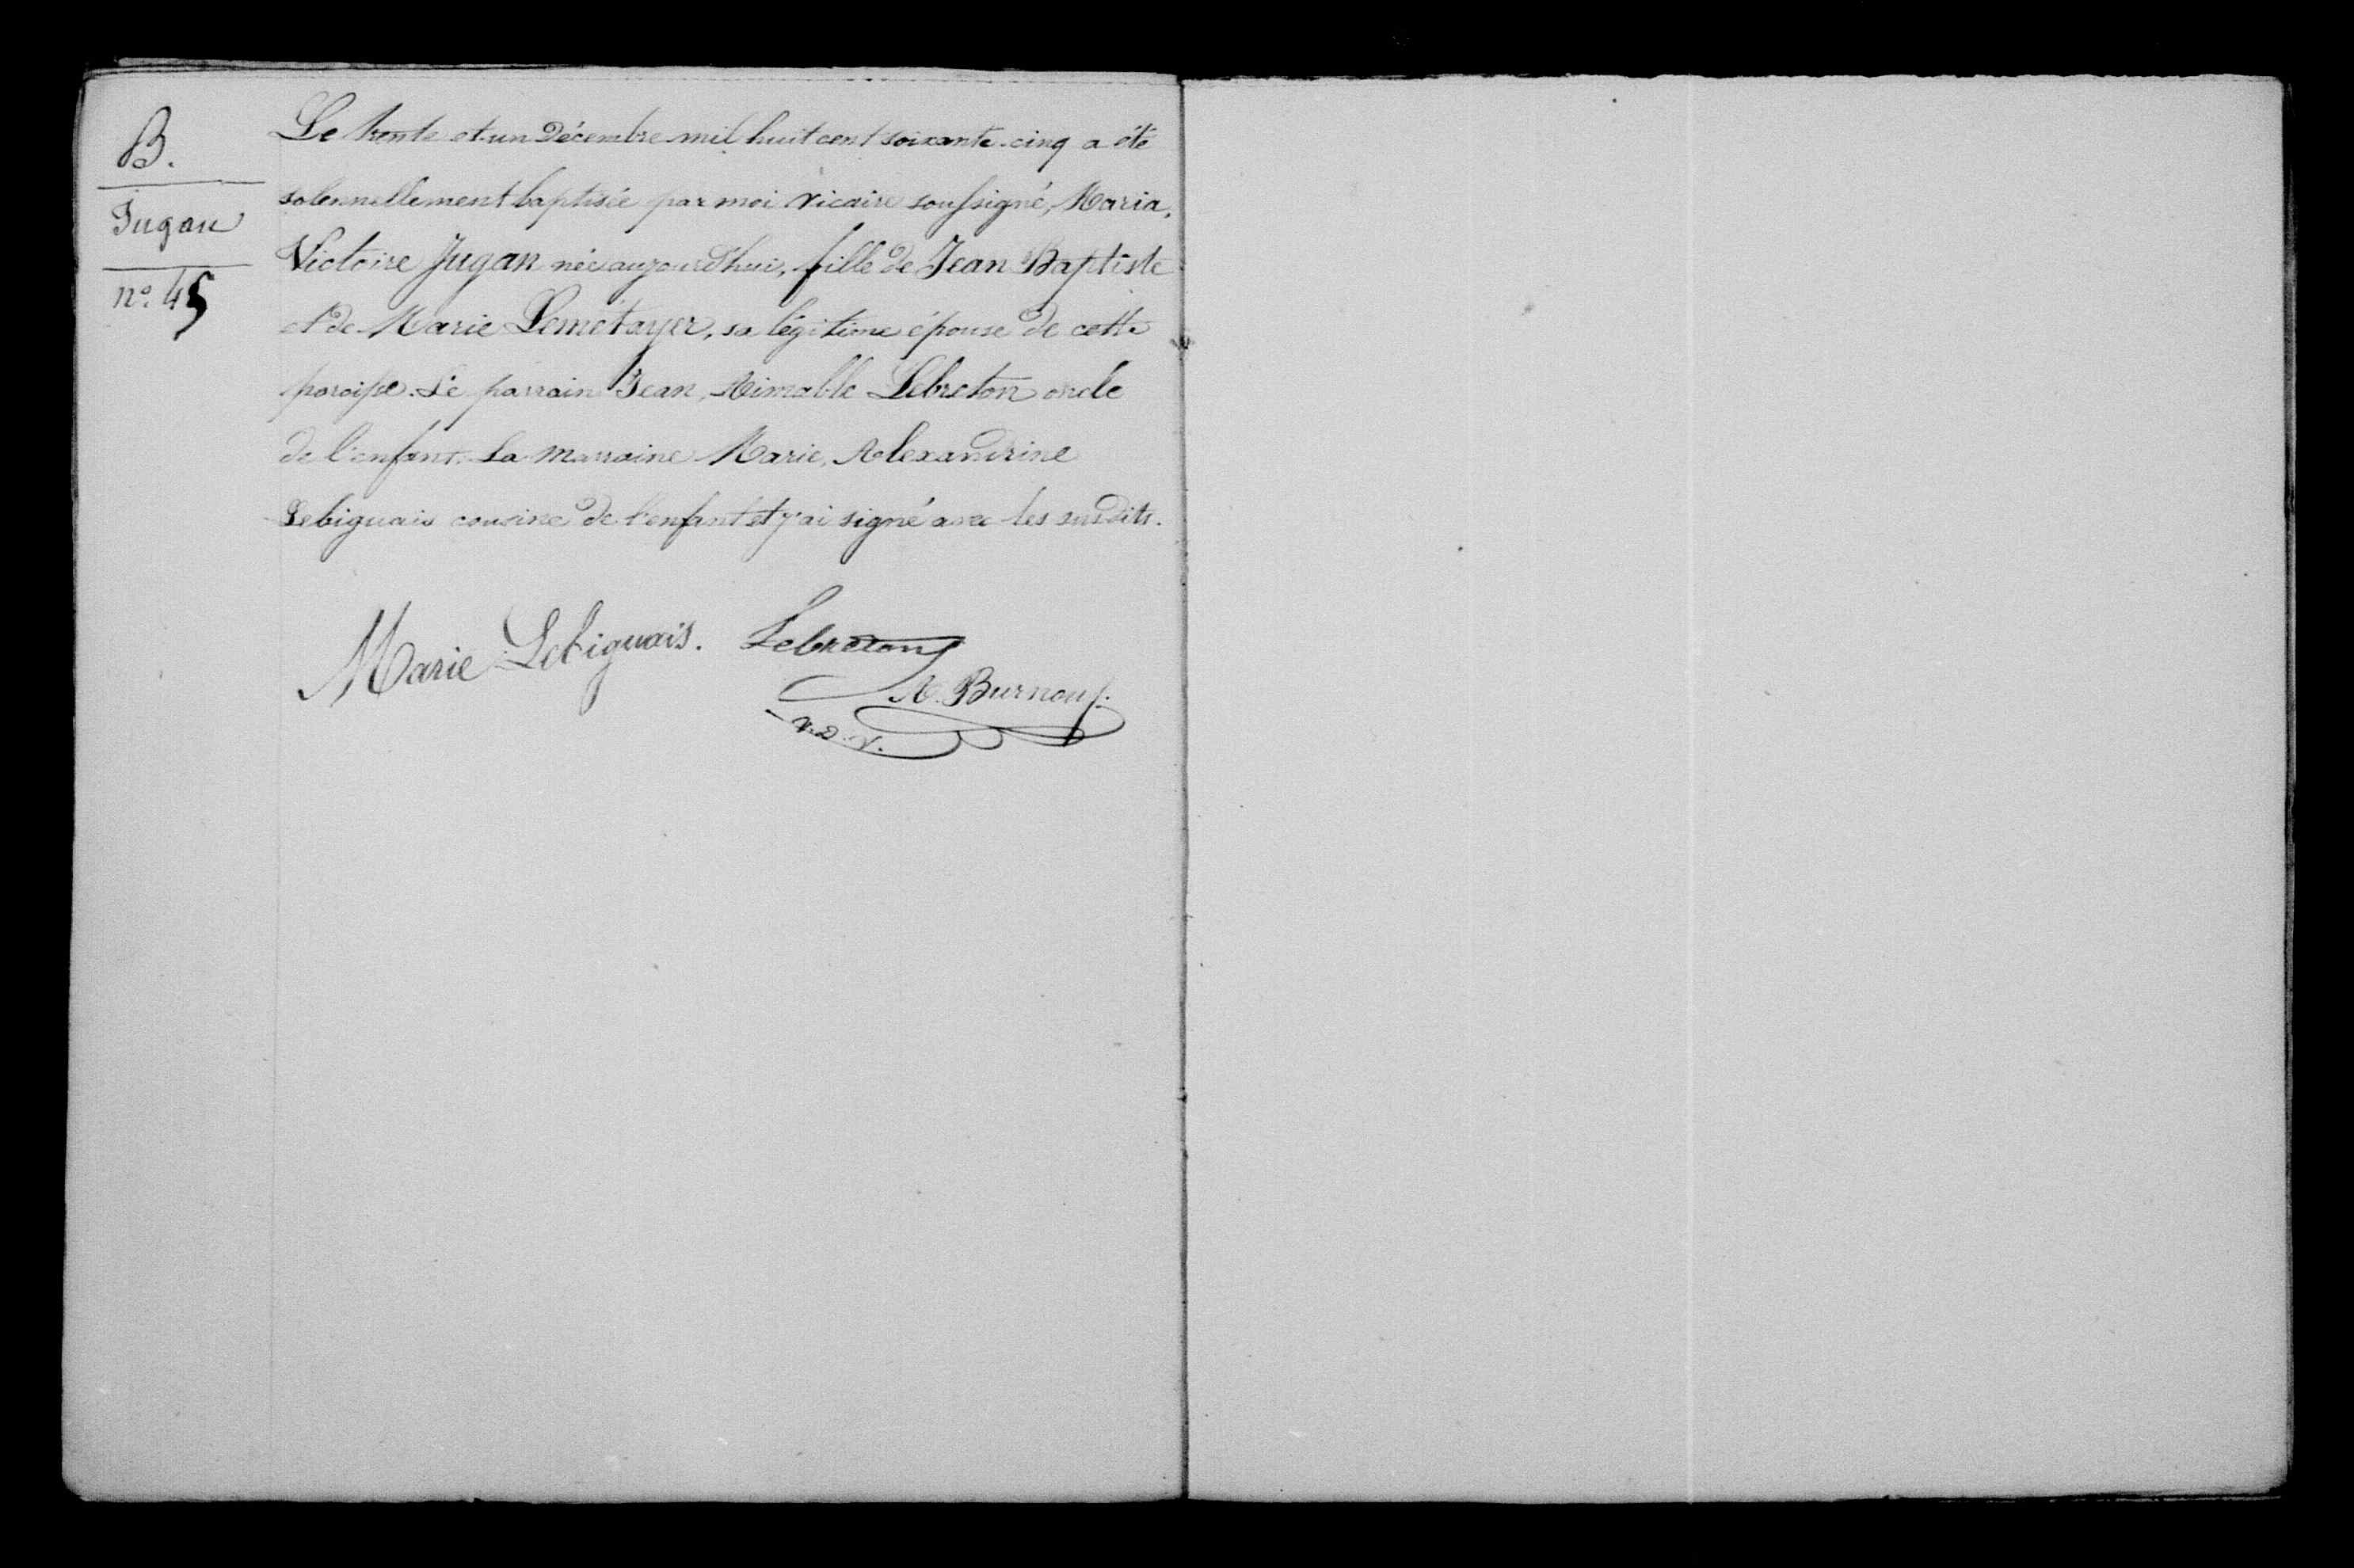 B.
Jugan
n°. 45
Le trente et un Décembre mil huit cent soixante-cinq a été
solennellement baptisée par moi vicaire soussigné, Maria,
Victoire Jugan née aujourd'hui, fille de Jean Baptiste
et de Marie Lemétayer, sa légitime épouse de cette
paroisse. Le parrain Jean, Aimable Lebreton oncle
de l'enfant. La marraine Marie, Alexandrine
Lebiguais cousine de l'enfant et j'ai signé avec les susdits.
Marie Lebiguais. Lebreton
A. Burnouf.
v.d.V.